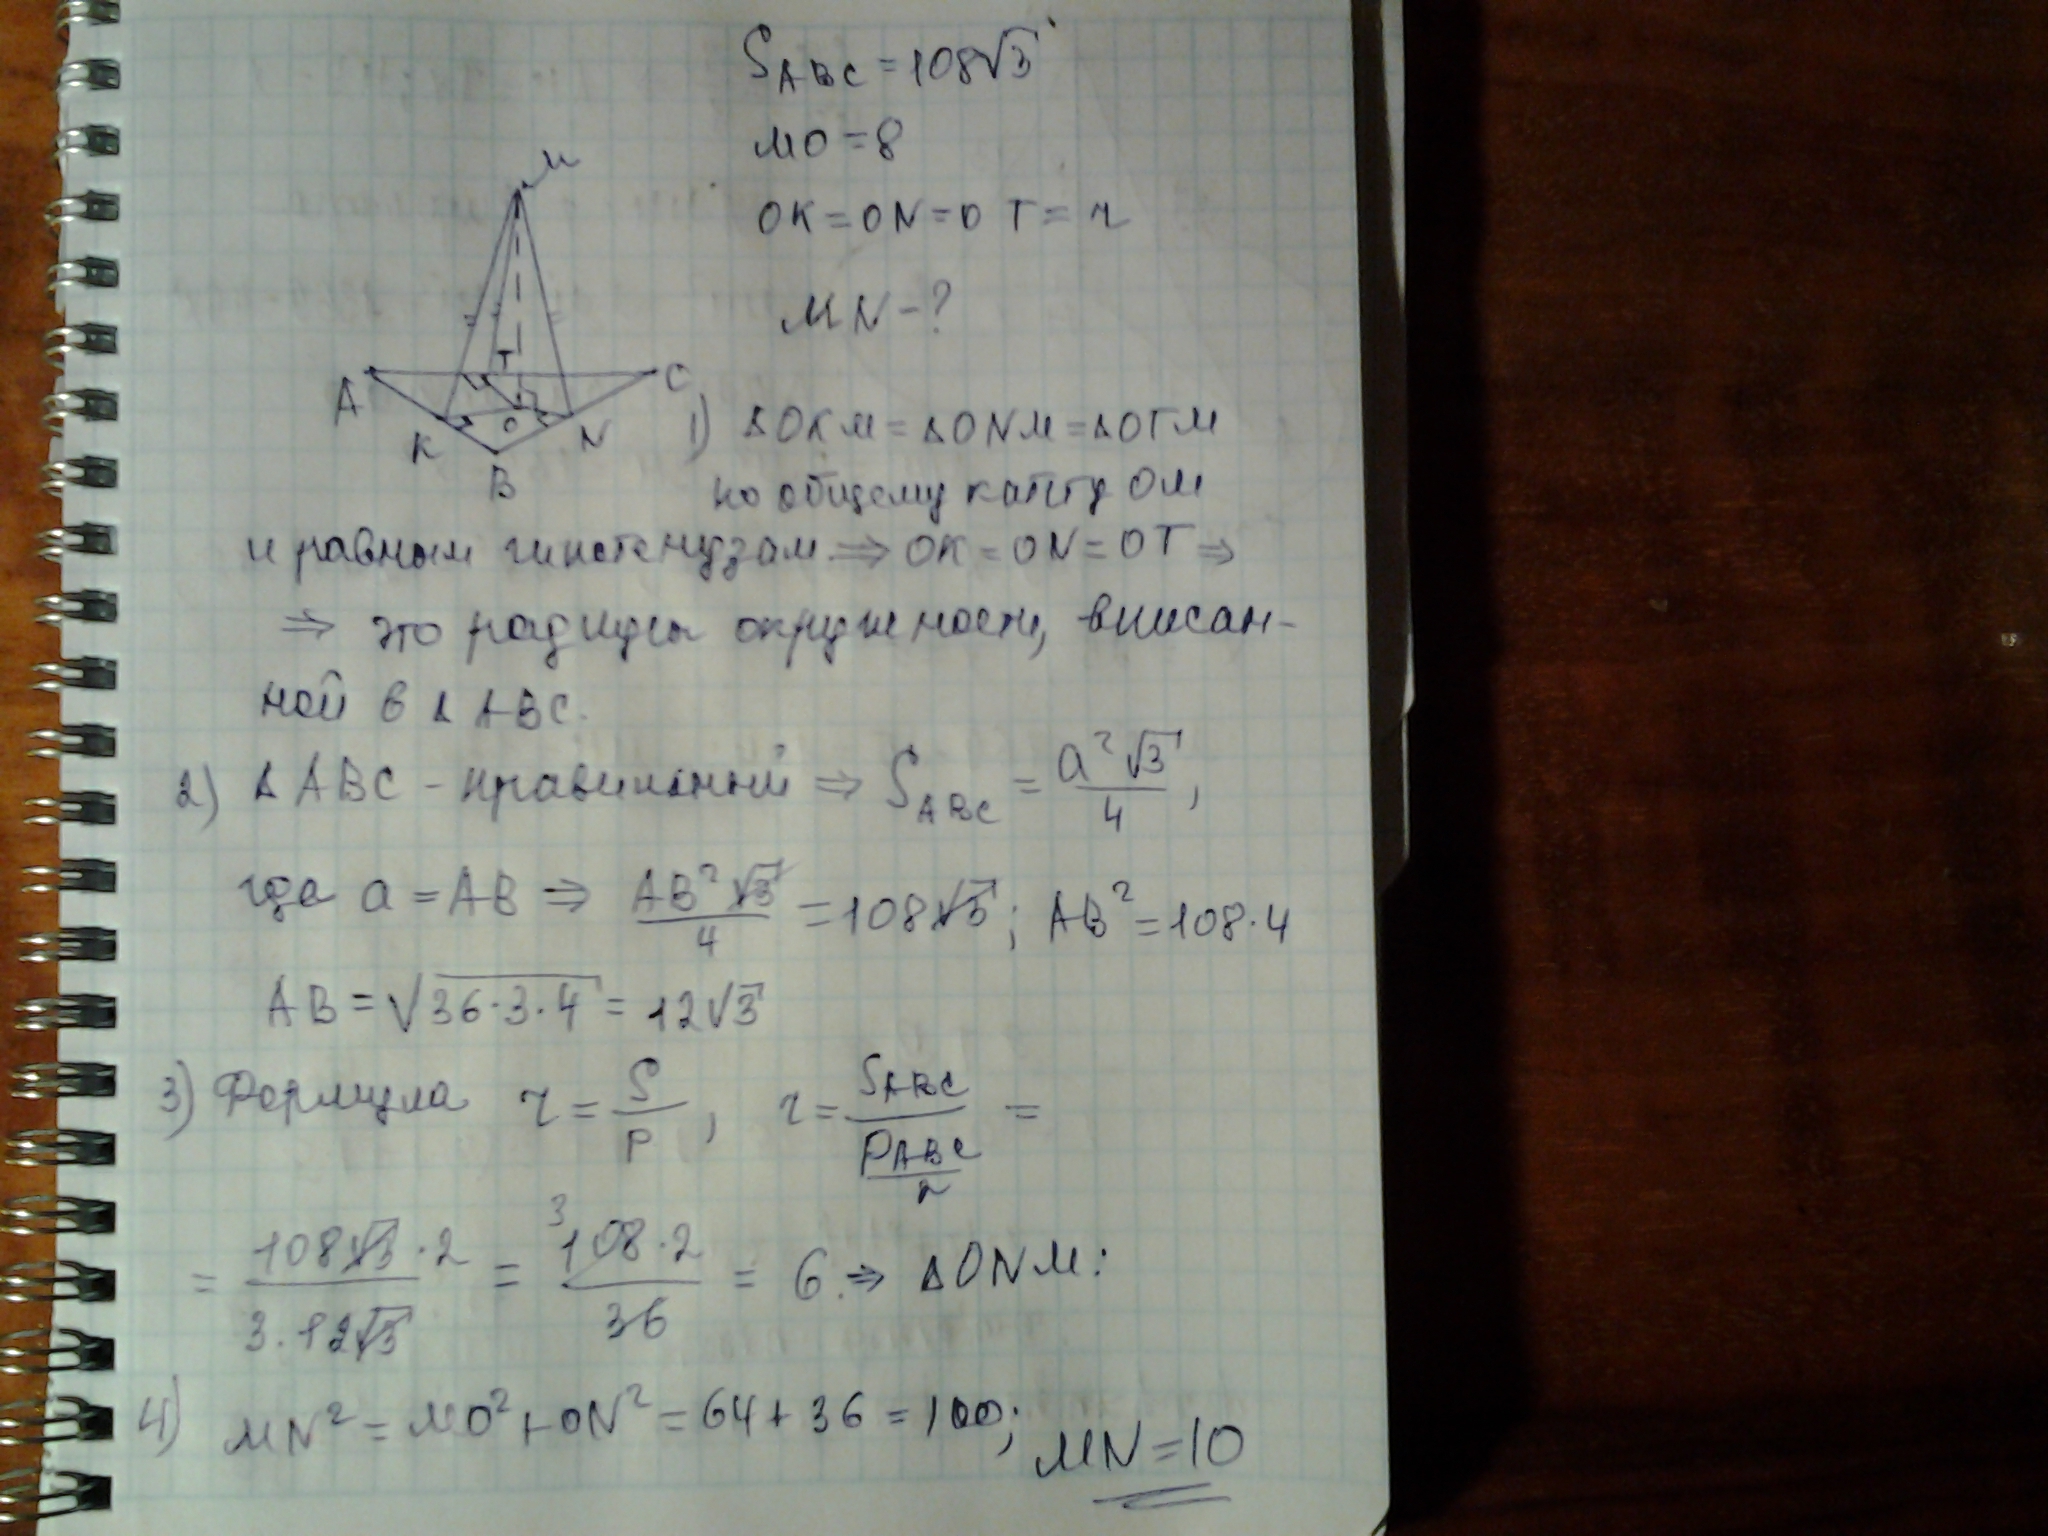 S_ABC = 108√3
MO = 8
OK = ON = OT = r
MN - ?
M
A
T
C
K
O
N
B
1) ΔOKM = ΔONM = ΔOTM
по общему катету OM
и равным гипотенузам ⇒ OK = ON = OT ⇒
⇒ это радиусы окружности, вписан-
ной в Δ ABC.
2) Δ ABC - правильный ⇒ S_ABC = a²√3/4,
где a = AB ⇒ AB²√3/4 = 108√3; AB² = 108·4
AB = √(36·3·4) = 12√3
3) Формула r = S/p, r = S_ABC/(P_ABC/2) =
= 108√3·2/(3·12√3) = 3 108·2/36 = 6. ⇒ ΔONM:
4) MN² = MO² + ON² = 64 + 36 = 100; MN = 10